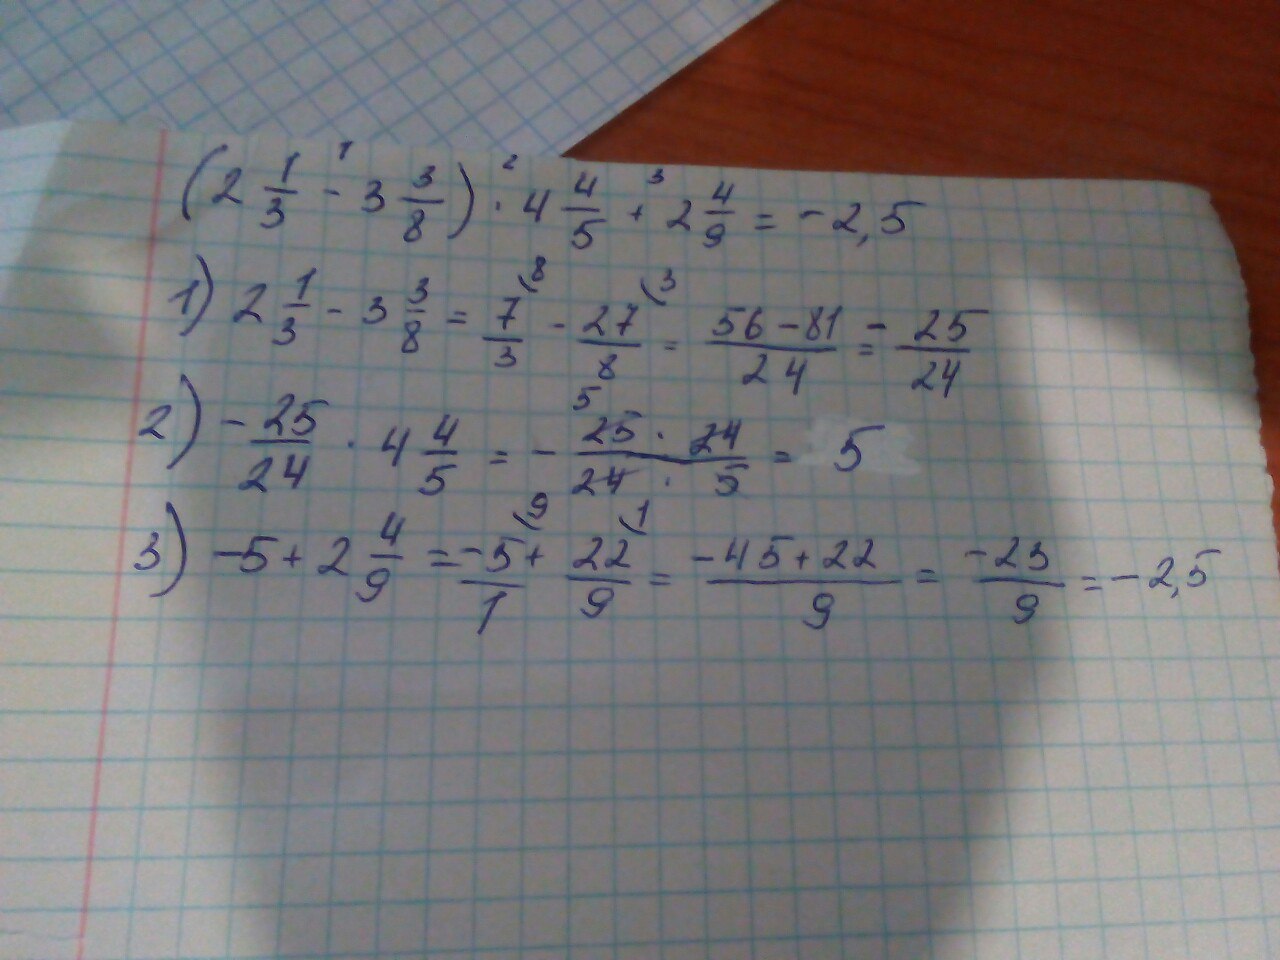 (2 1/3 - 3 3/8) · 4 4/5 + 2 4/9 = - 2,5
1) 2 1/3 - 3 3/8 = 7/3 - 27/8 = (56 - 81)/24 = - 25/24
2) - 25/24 · 4 4/5 = - (25 · 24)/(24 · 5) = 5
3) -5 + 2 4/9 = -5/1 + 22/9 = (-45 + 22)/9 = -23/9 = -2,5